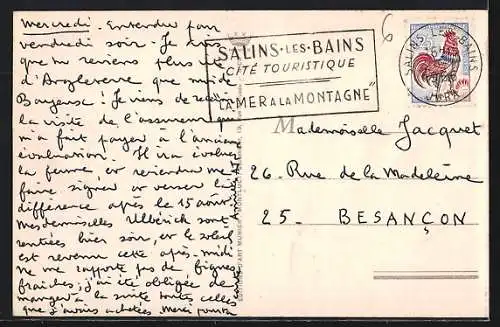 mercredi. Entendu pour
vendredi soir. Je vois
que tu reviens plus
d'Angleterre que
! Je viens de
la visite de l'assureur qui
m'a fait payer à l'ancienne
évaluation. Il va évaluer
la ferme, et reviendra me
faire signer et verser la
différence après le 15 août.
Mesdemoiselles Ulbérick sont
rentrées hier soir, et le soleil
est revenu cette après-midi
ne me rapporte pas de figues
fraîches; j'ai été obligée de
manger à la suite toutes celles
que j'avais achetées. Merci pour
SALINS-LES-BAINS
CITÉ TOURISTIQUE
"LA MER A LA MONTAGNE"
SALINS LES BAINS
JURA
6
Mademoiselle Jacquet
26. Rue de la Madeleine
25. BESANÇON